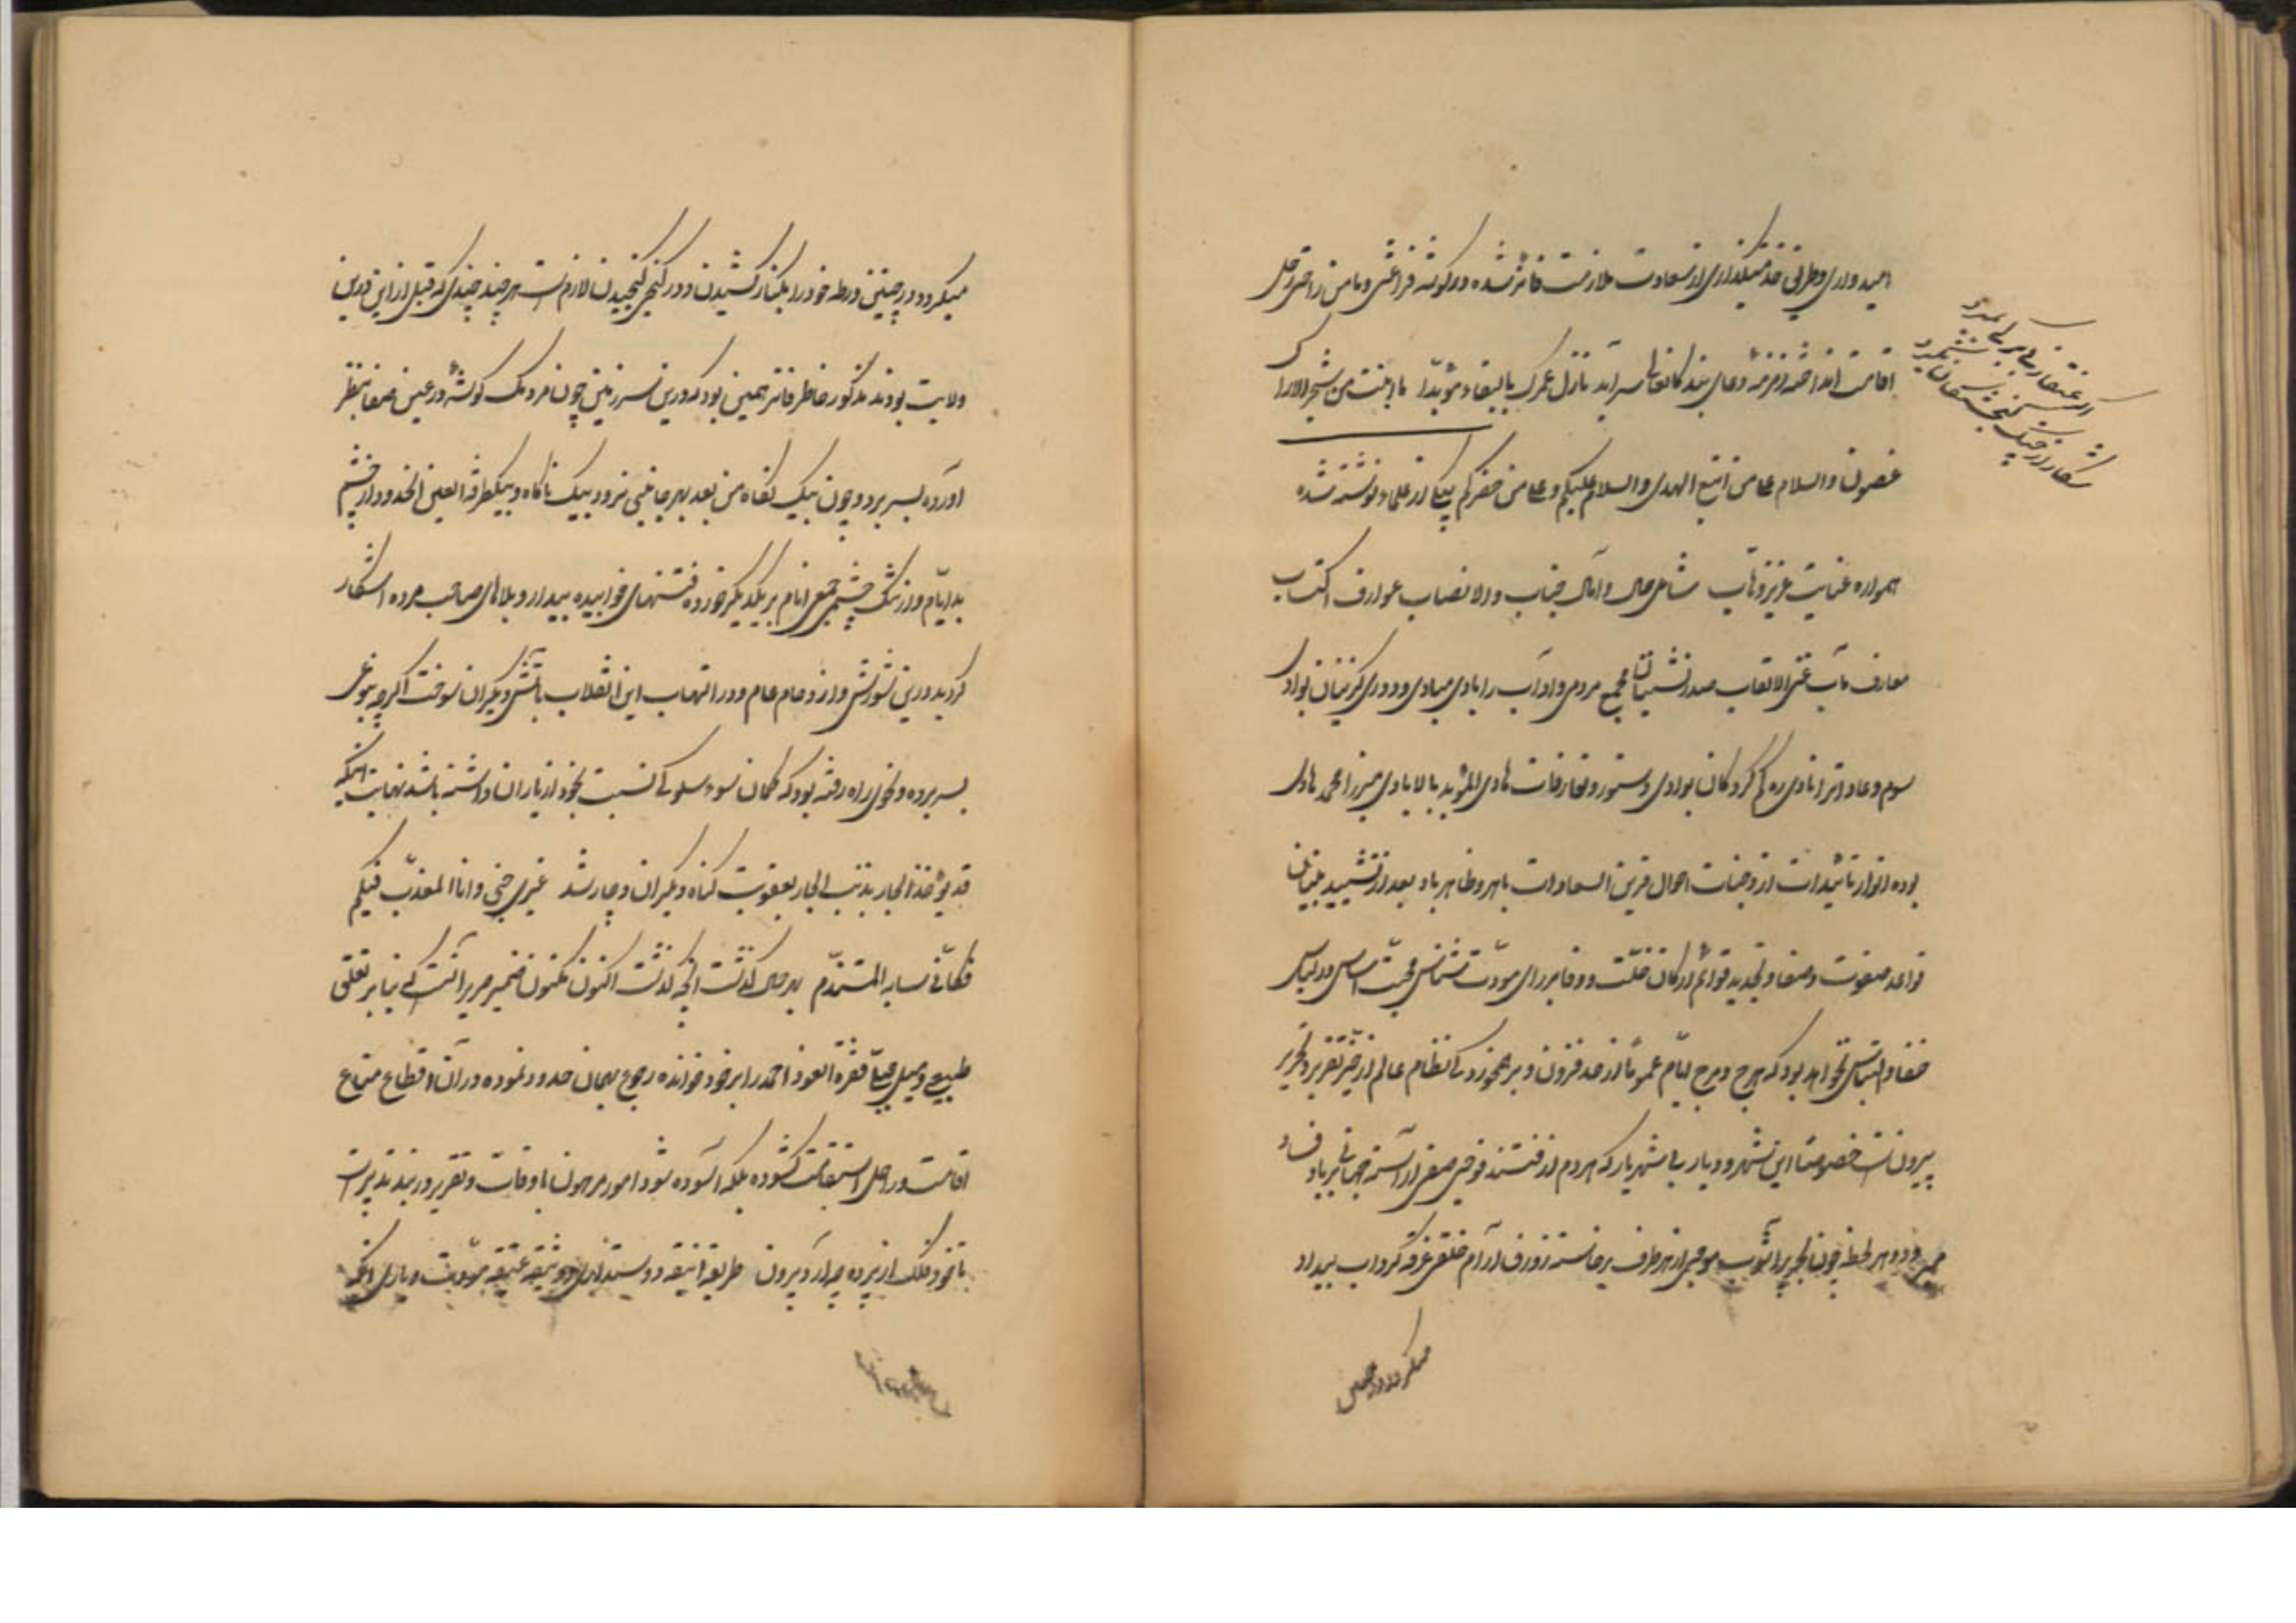 امیدواری و طراقی خدمتگذاری از سعادت ملازمت فائز شده در گوشه فراغتی و مامن راحتی رحل
اقامت انداخته زمزمه دعای بندگانعالی سراید تازل عمرک بالبقاء مؤبدا ما انبتت من شجر الاراک
غصون والسلام علی من اتبع الهدی والسلام علیکم و علی من حضرکم بیکی از علماء نوشته شده
همواره عنایت عزیز وهاب شامل حال و آمال جناب والانصاب عوارف اکتساب
معارف مآب غنی الالقاب صدرنشینان مجمع مردمی و آداب را بادی مبادی و دوری گزینان بوادی
سوم و عادات را نادی ره گم کردگان بوادی دستور و تعارفات هادی المؤید بالایادی میرزا محمد هادی
بوده انوار تائیدات از وجنات احوال قرین السعادات باهر و ظاهر باد بعد از تشیید بنیان
قواعد صفوت و صفا و تجدید قوائم ارکان خلّت و وفا بر رای مودّت شناس محبت اساس در لباس
خفا و التباس نخواهد بود که هرج و مرج ایّام عموماً از حد فزون و برهمخوردگی نظام عالم از حیّز تقریر و تحریر
بیرونست خصوصاً این شهر و دیار بی شهریار که هر دم از فتنه فوجی صفی آراسته جهانی بر باد فساد
میرود و هر لحظه چون بحر پرآشوب موجی از هر طرف برخاسته زورق آرام خلقی غرقه گرداب بیداد
میگردد و در چنین
اگر منقار
میگردد و در چنین ورطه خود را بکنار کشیدن و در کنجی گنجیدن لازم است هر چند چندی که قبل از این درین
ولایت بودند مذکور خاطر فاتر همین بود که درین سرزمین چون مردمک گوشه در عین صفا بنظر
آورده بسر برد و چون بیک نگاه من بعد بهر جانبی نرود بیک ناگاه و بیکطرفه العین الحذر از چشم
بد ایّام و از تنگ چشمی جمعی انام بر یکدیگر خورده فتنهای خوابیده بیدار و بلاهای صاحب مرده آشکار
گردید درین شورش و ازدحام عام و در التهاب این انقلاب بآتش دیگران سوخت اگرچه بنوعی
بسر برده و بنحوی راه رفته بود که گمان سوء سلوکی نسبت بخود از یاران داشته باشد نهایت اینکه
قد یؤخذ الجار بذنب الجار بعقوبت گناه دیگران دچار شد غیری جنی و انا المعذب فیکم
فکأنّی سبابه المتندّم بهر حال گذشت آنچه گذشت اکنون مکنون ضمیر مریر آنست که بنابر تعلق
طبیعی و میل جبلّی فقره العود احمد را بر خود خوانده رجوع بهمان حدود نموده در آن اقطاع متاع
اقامت و راحل استقامت گشوده بلکه آسوده شود امور مرهون باوقات و تقریر در بند تدبیر است
تا خود فلک از پرده چه آرد بیرون طریقه انیقه دوستداری و وثیقه عتیقه مروّت و یاری آنکه